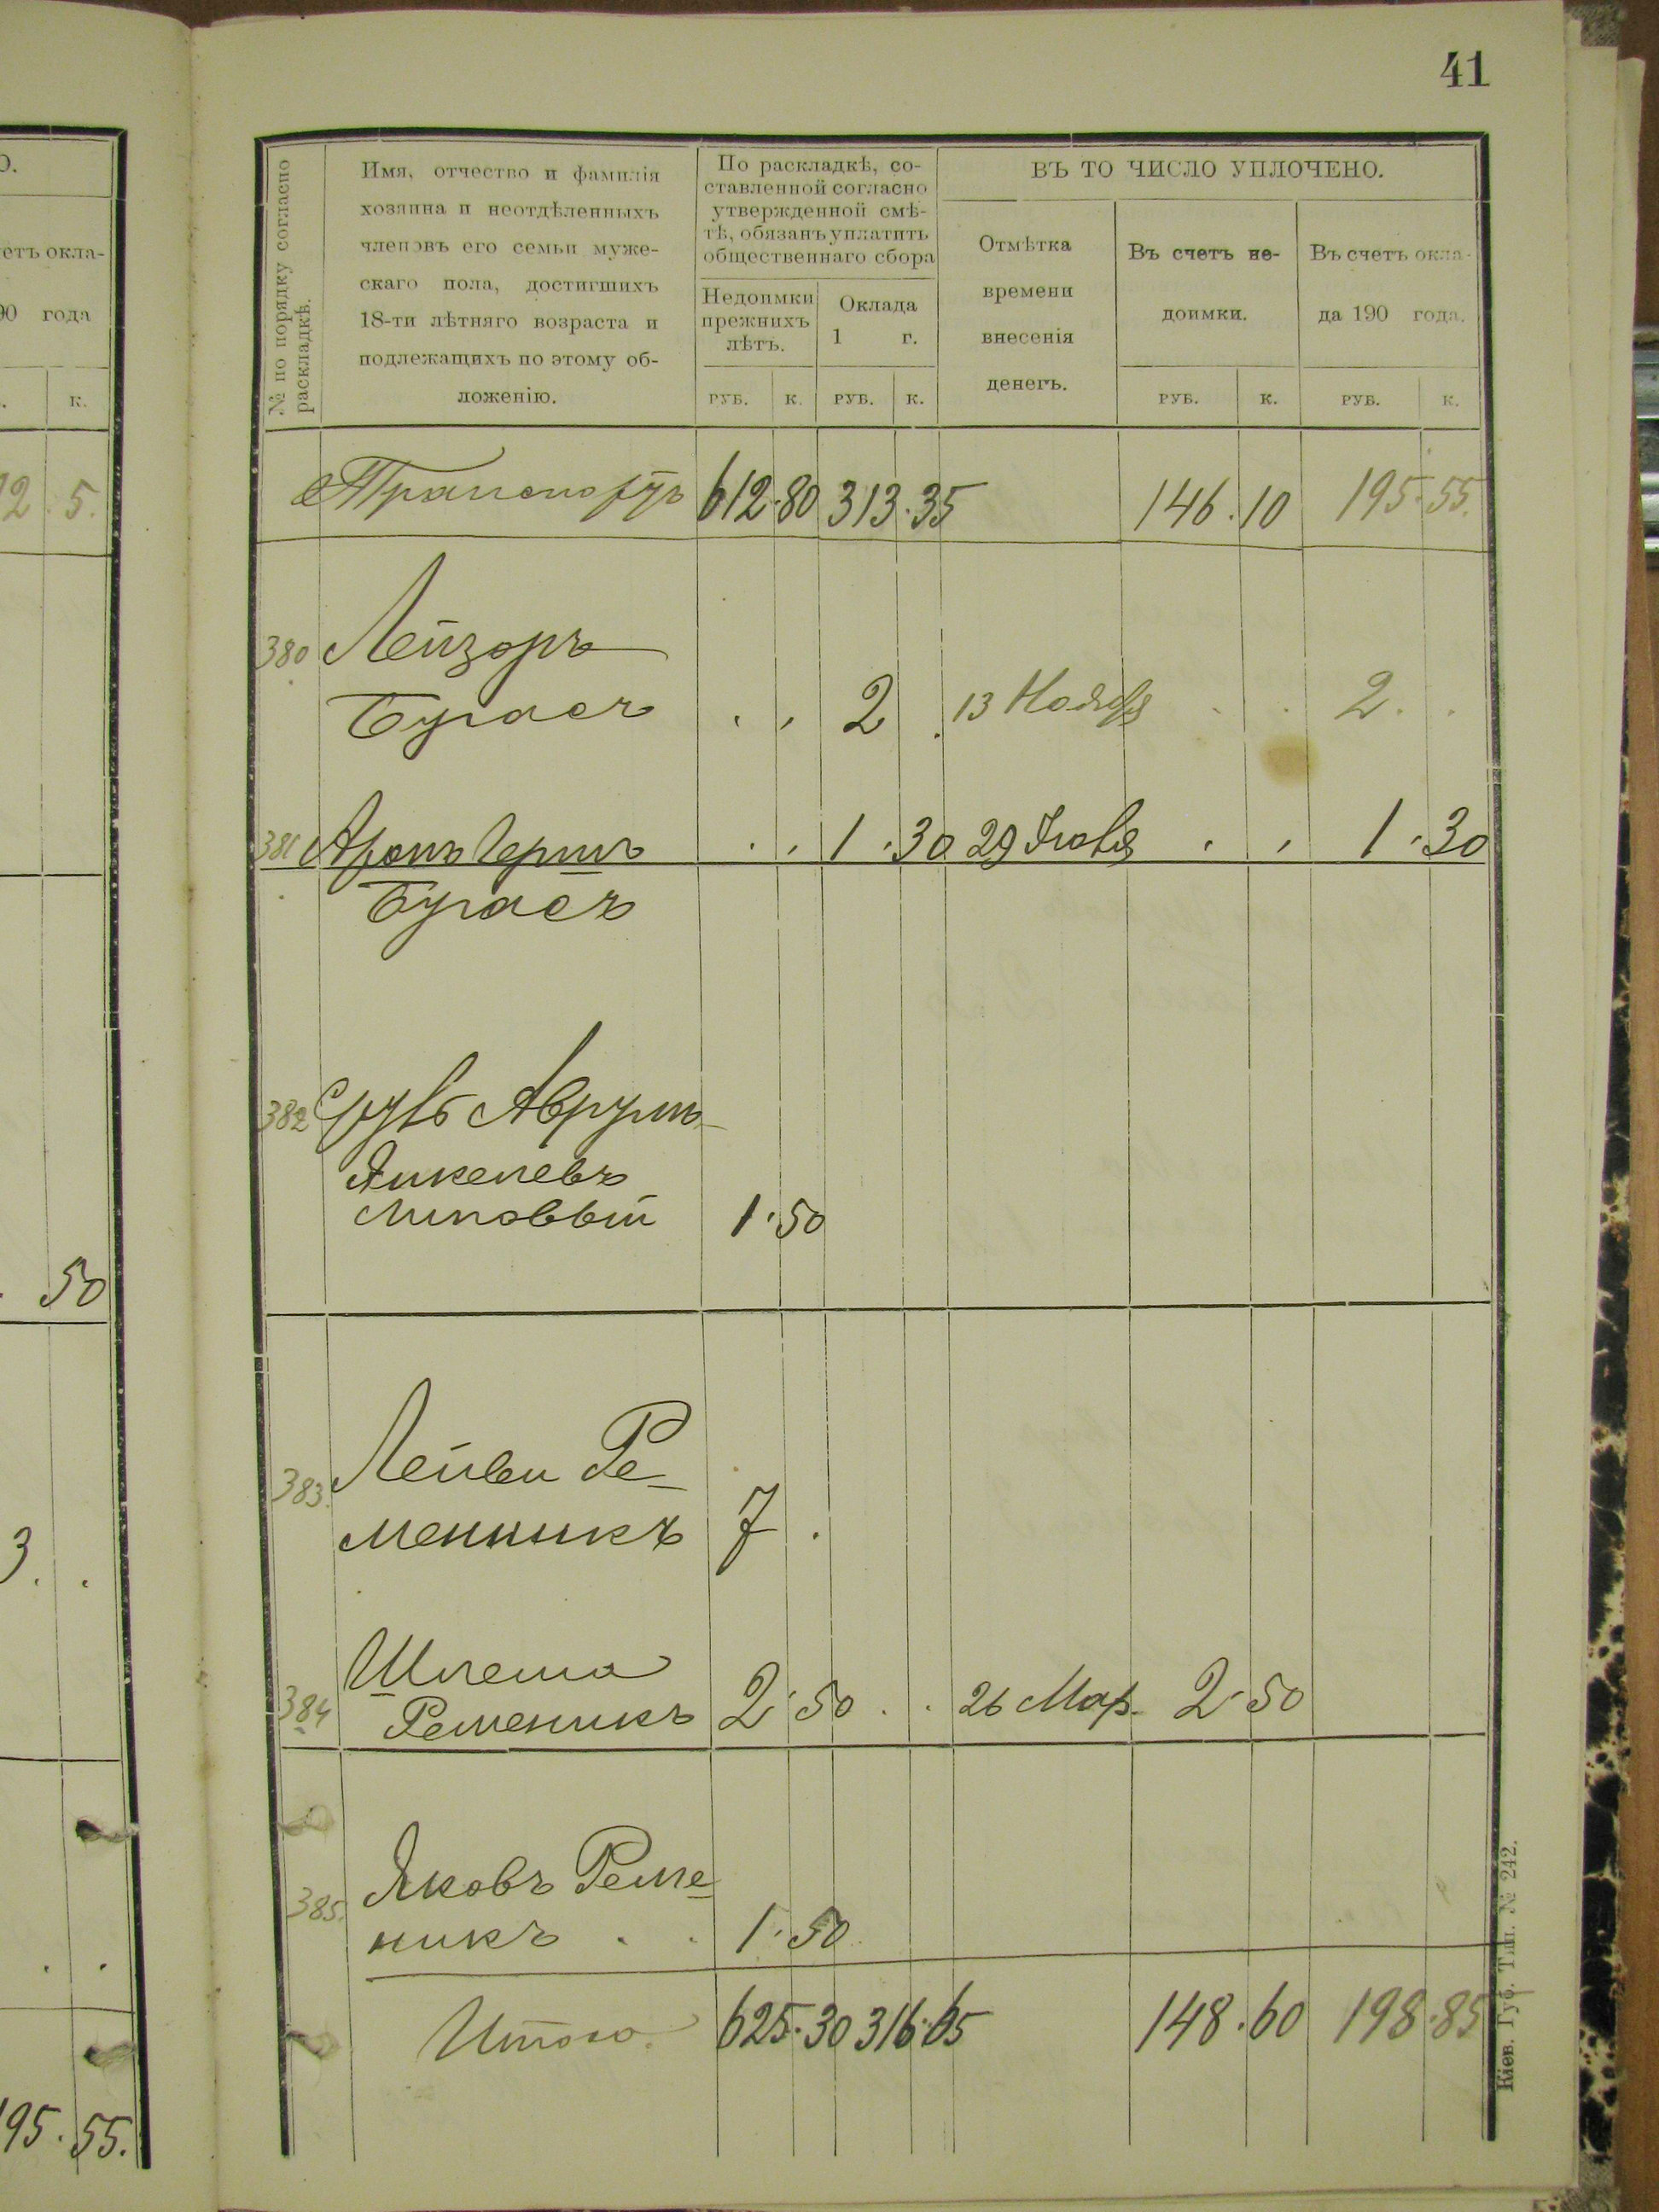 41
О.
етъ окла-
90 года
к.
12. 5.
50
3. .
195. 55.
№ по порядку согласно
раскладкѣ.
Имя, отчество и фамилія
хозяина и неотдѣленныхъ
членовъ его семьи муже-
скаго пола, достигшихъ
18-ти лѣтняго возраста и
подлежащихъ по этому об-
ложенію.
По раскладкѣ, со-
ставленной согласно
утвержденной смѣ-
тѣ, обязанъ уплатить
общественнаго сбора
Недоимки
прежнихъ
лѣтъ.
Оклада
1 г.
РУБ. К. РУБ. К.
ВЪ ТО ЧИСЛО УПЛОЧЕНО.
Отмѣтка
времени
внесенія
денегъ.
Въ счетъ не-
доимки.
Въ счетъ окла-
да 190 года.
РУБ. К. РУБ. К.
Транспортъ 612.80 313.35 146.10 195.55.
380 Лейзоръ
Бугаеъ . . 2 . 13 Ноября . . 2. .
381 Аронъ Герш . . 1.30 29 . . 1.30
Бугаеъ
382 Сруль Аврумъ
Янкелевъ
Липовый 1.50
383. Лейви Ре-
менникъ 7 .
384 Шлема
Ременикъ 2.50 . . 26 Мар. 2.50
385. Яковъ Реме-
никъ . . 1.50
Итого. 625.30 316.65 148.60 198.85
Кіев. Губ. Тип. № 242.